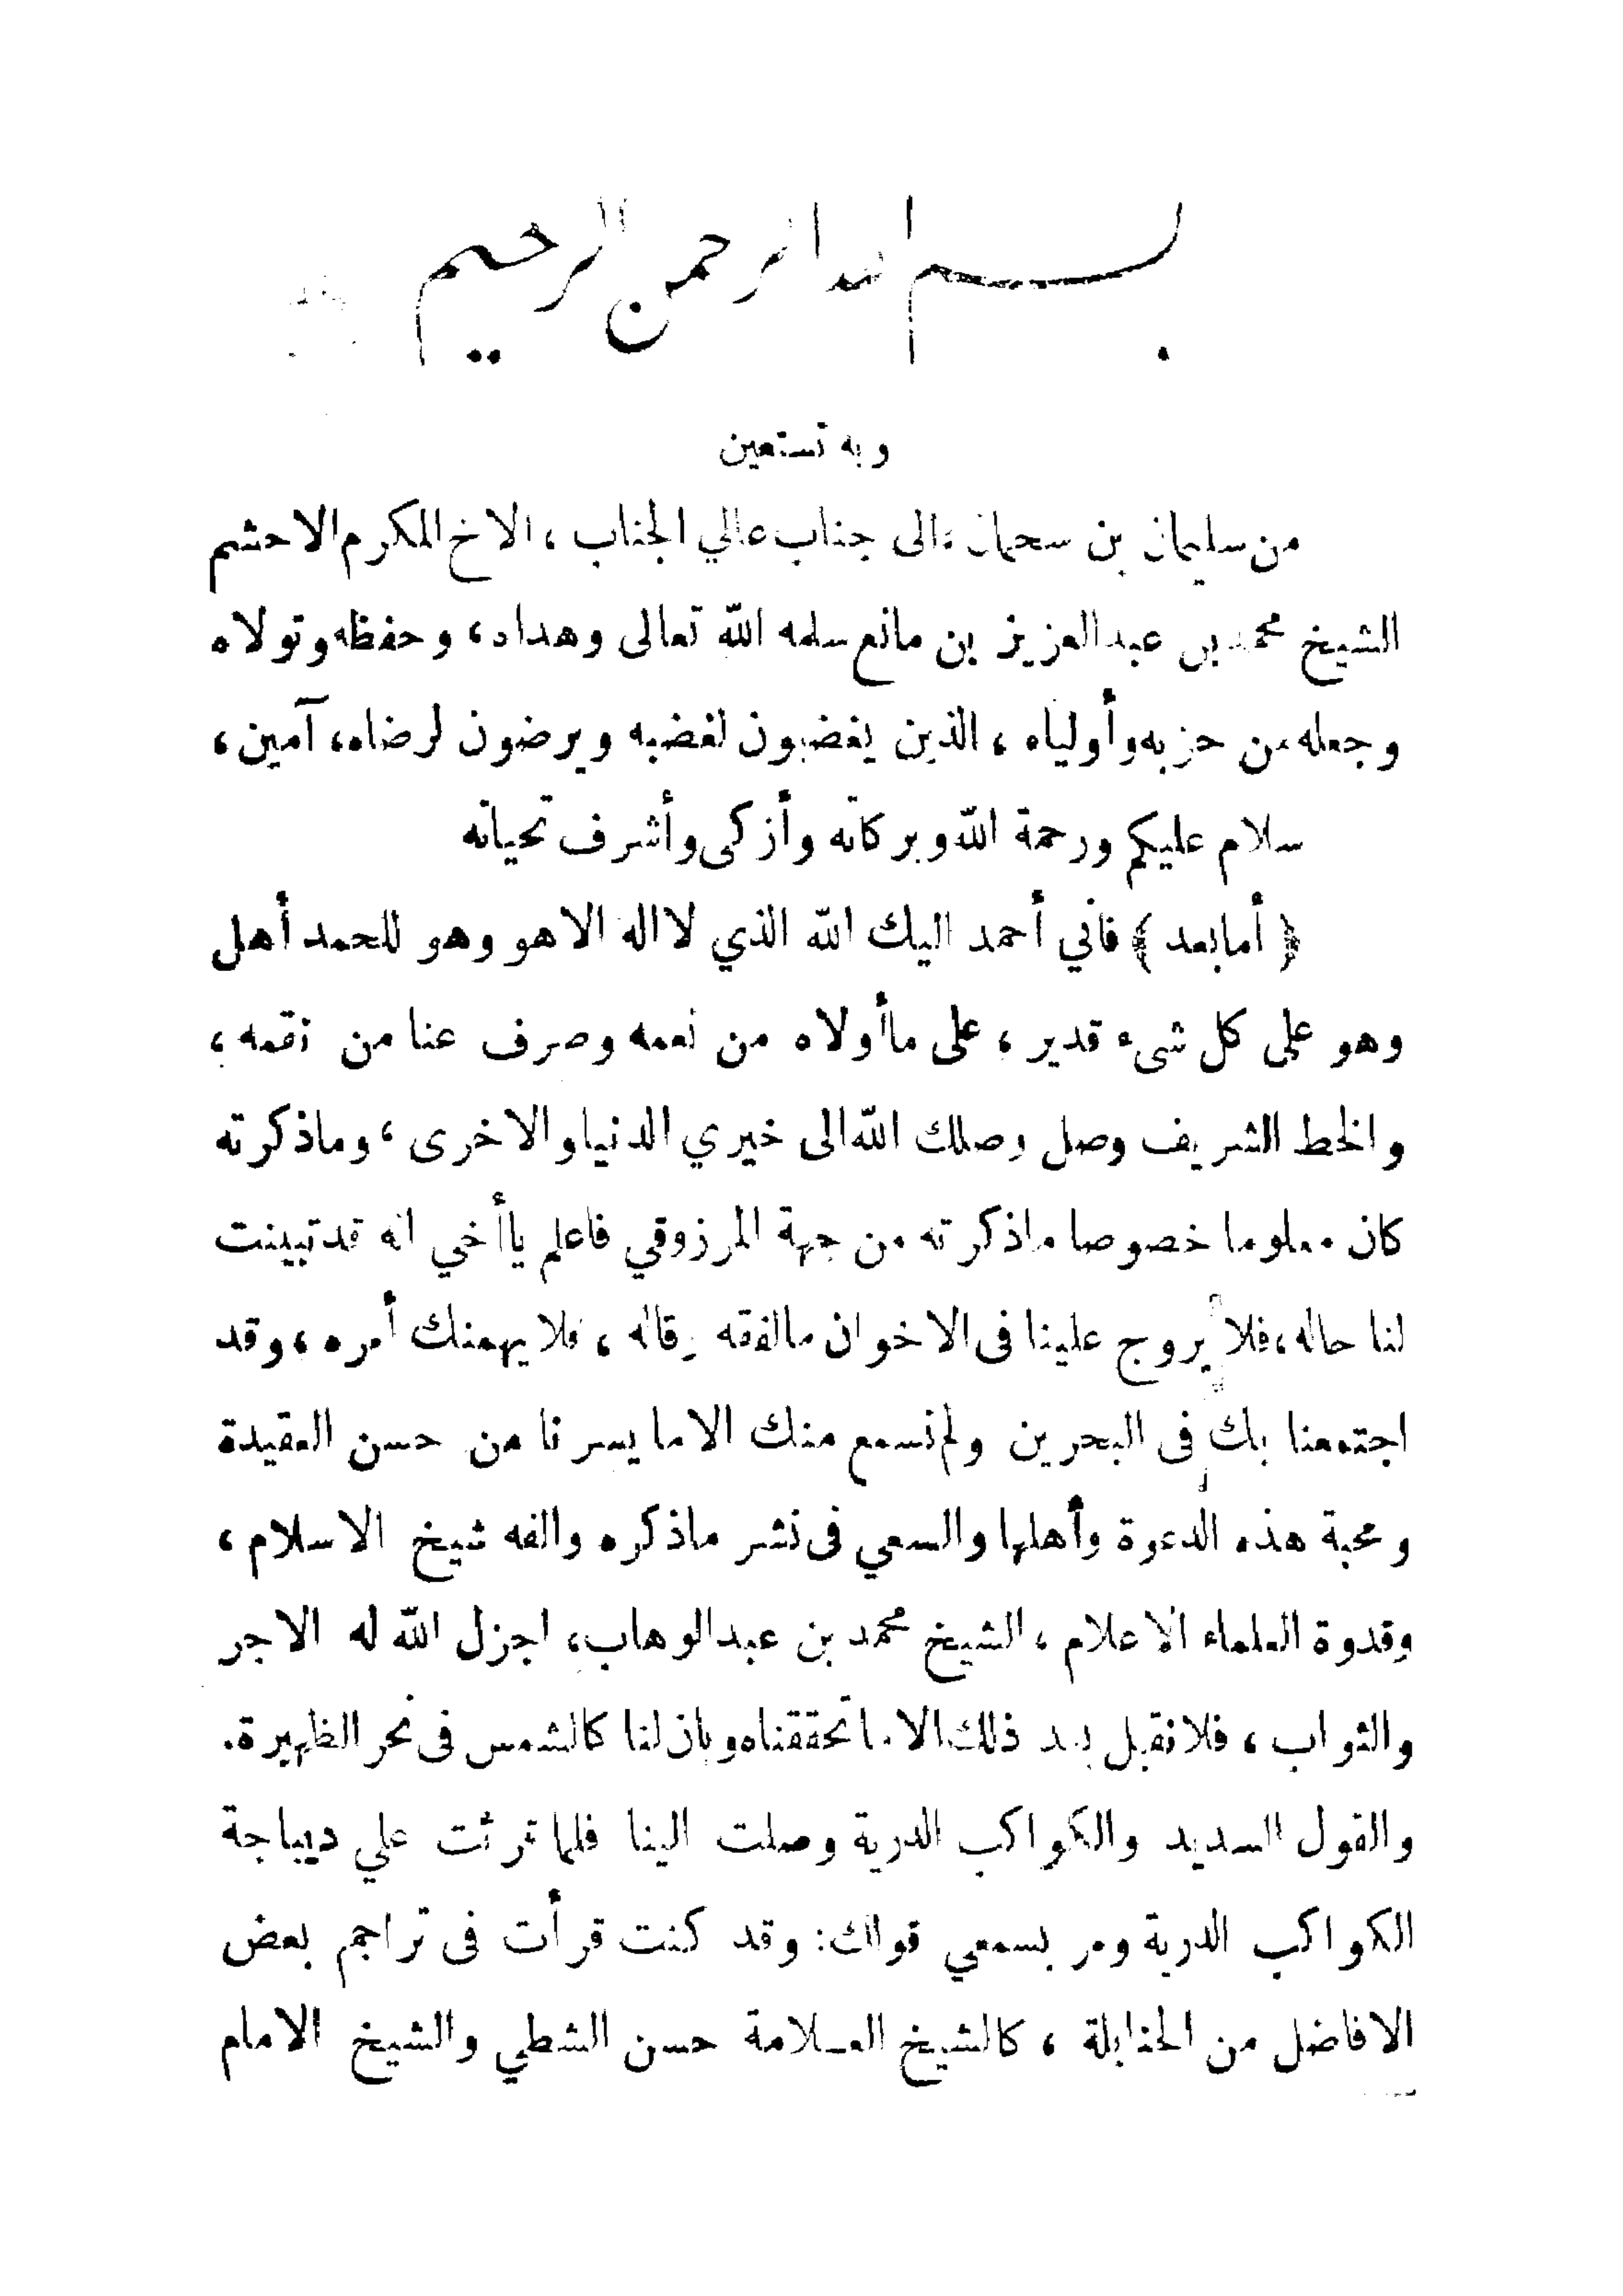 بسم الله الرحمن الرحيم
وبه نستعين
من سليمان بن سحمان الى جناب عالي الجناب ، الاخ المكرم الاحشم
الشيخ محمد بن عبد العزيز بن مانع سلمه الله تعالى وهداه ، وحفظه وتولاه
وجعله من حزبه وأولياه ، الذين يغضبون لغضبه ويرضون لرضاه ، آمين ،
سلام عليكم ورحمة الله وبركاته وأزكى وأشرف تحياته
﴿ أما بعد ﴾ فأني أحمد اليك الله الذي لا اله الا هو وهو للحمد أهل
وهو على كل شىء قدير ، على ما أولاه من نعمه وصرف عنا من نقمه ،
والخط الشريف وصل وصلك الله الى خيري الدنيا والاخرى ، وما ذكرته
كان معلوما خصوصا ماذكرته من جهة المرزوقي فاعلم يا أخي انه قد تبينت
لنا حاله ، فلا يروج علينا فى الاخوان مالفقه وقاله ، فلا يهمنك أمره ، وقد
اجتمعنا بك فى البحرين ولم نسمع منك الا ما يسرنا من حسن العقيدة
ومحبة هذه الدعوة وأهلها والسعي فى نشر ماذكره والفه شيخ الاسلام ،
وقدوة العلماء الاعلام ، الشيخ محمد بن عبد الوهاب ، اجزل الله له الاجر
والثواب ، فلا نقبل بعد ذلك الا ما تحققناه وبان لنا كالشمس فى نحر الظهيرة .
والقول السديد والكواكب الدرية وصلت الينا فلما قرئت علي ديباجة
الكواكب الدرية ومر بسمعي قولك : وقد كنت قرأت فى تراجم بعض
الافاضل من الحنابلة ، كالشيخ العلامة حسن الشطي والشيخ الامام